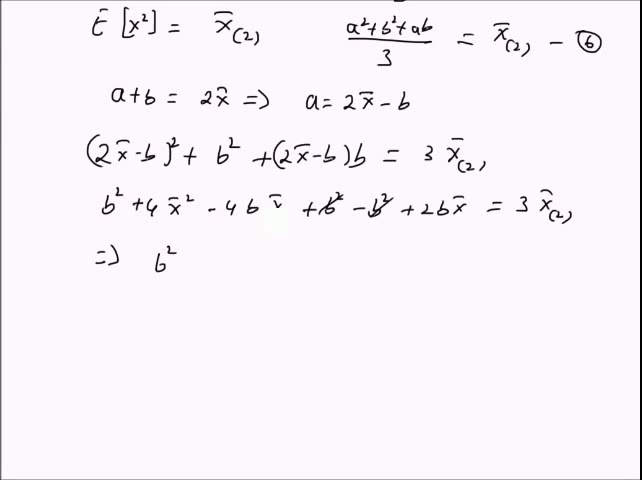 E[x²] = x̄₍₂₎   (a²+b²+ab)/3 = x̄₍₂₎ – ⑥
a+b = 2x̄ => a = 2x̄ – b
(2x̄–b)² + b² + (2x̄–b)b = 3 x̄₍₂₎
b² + 4x̄² – 4b x̄ + b² – b² + 2bx̄ = 3 x̄₍₂₎
=> b²